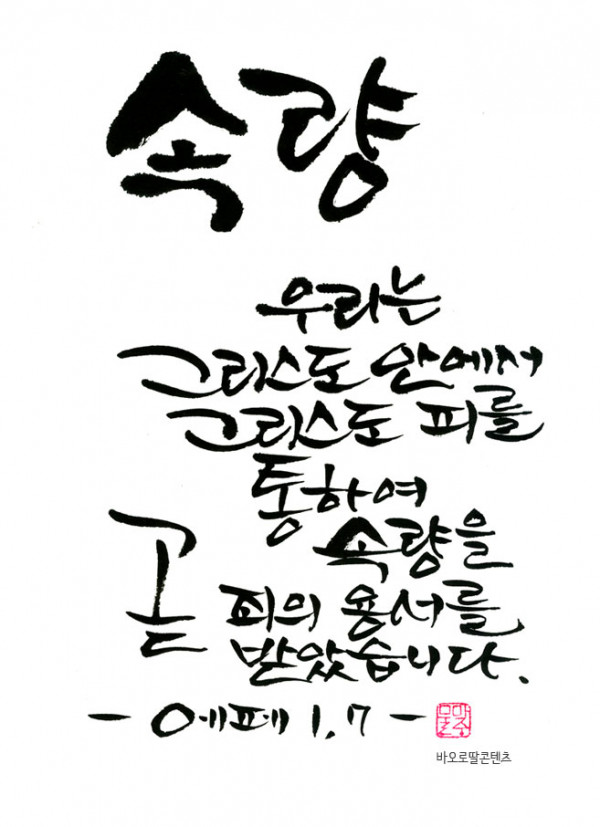 속량
우리는
그리스도 안에서
그리스도 피를
통하여
속량을
곧 죄의 용서를
받았습니다.
- 에페 1,7 -
바오로딸콘텐츠